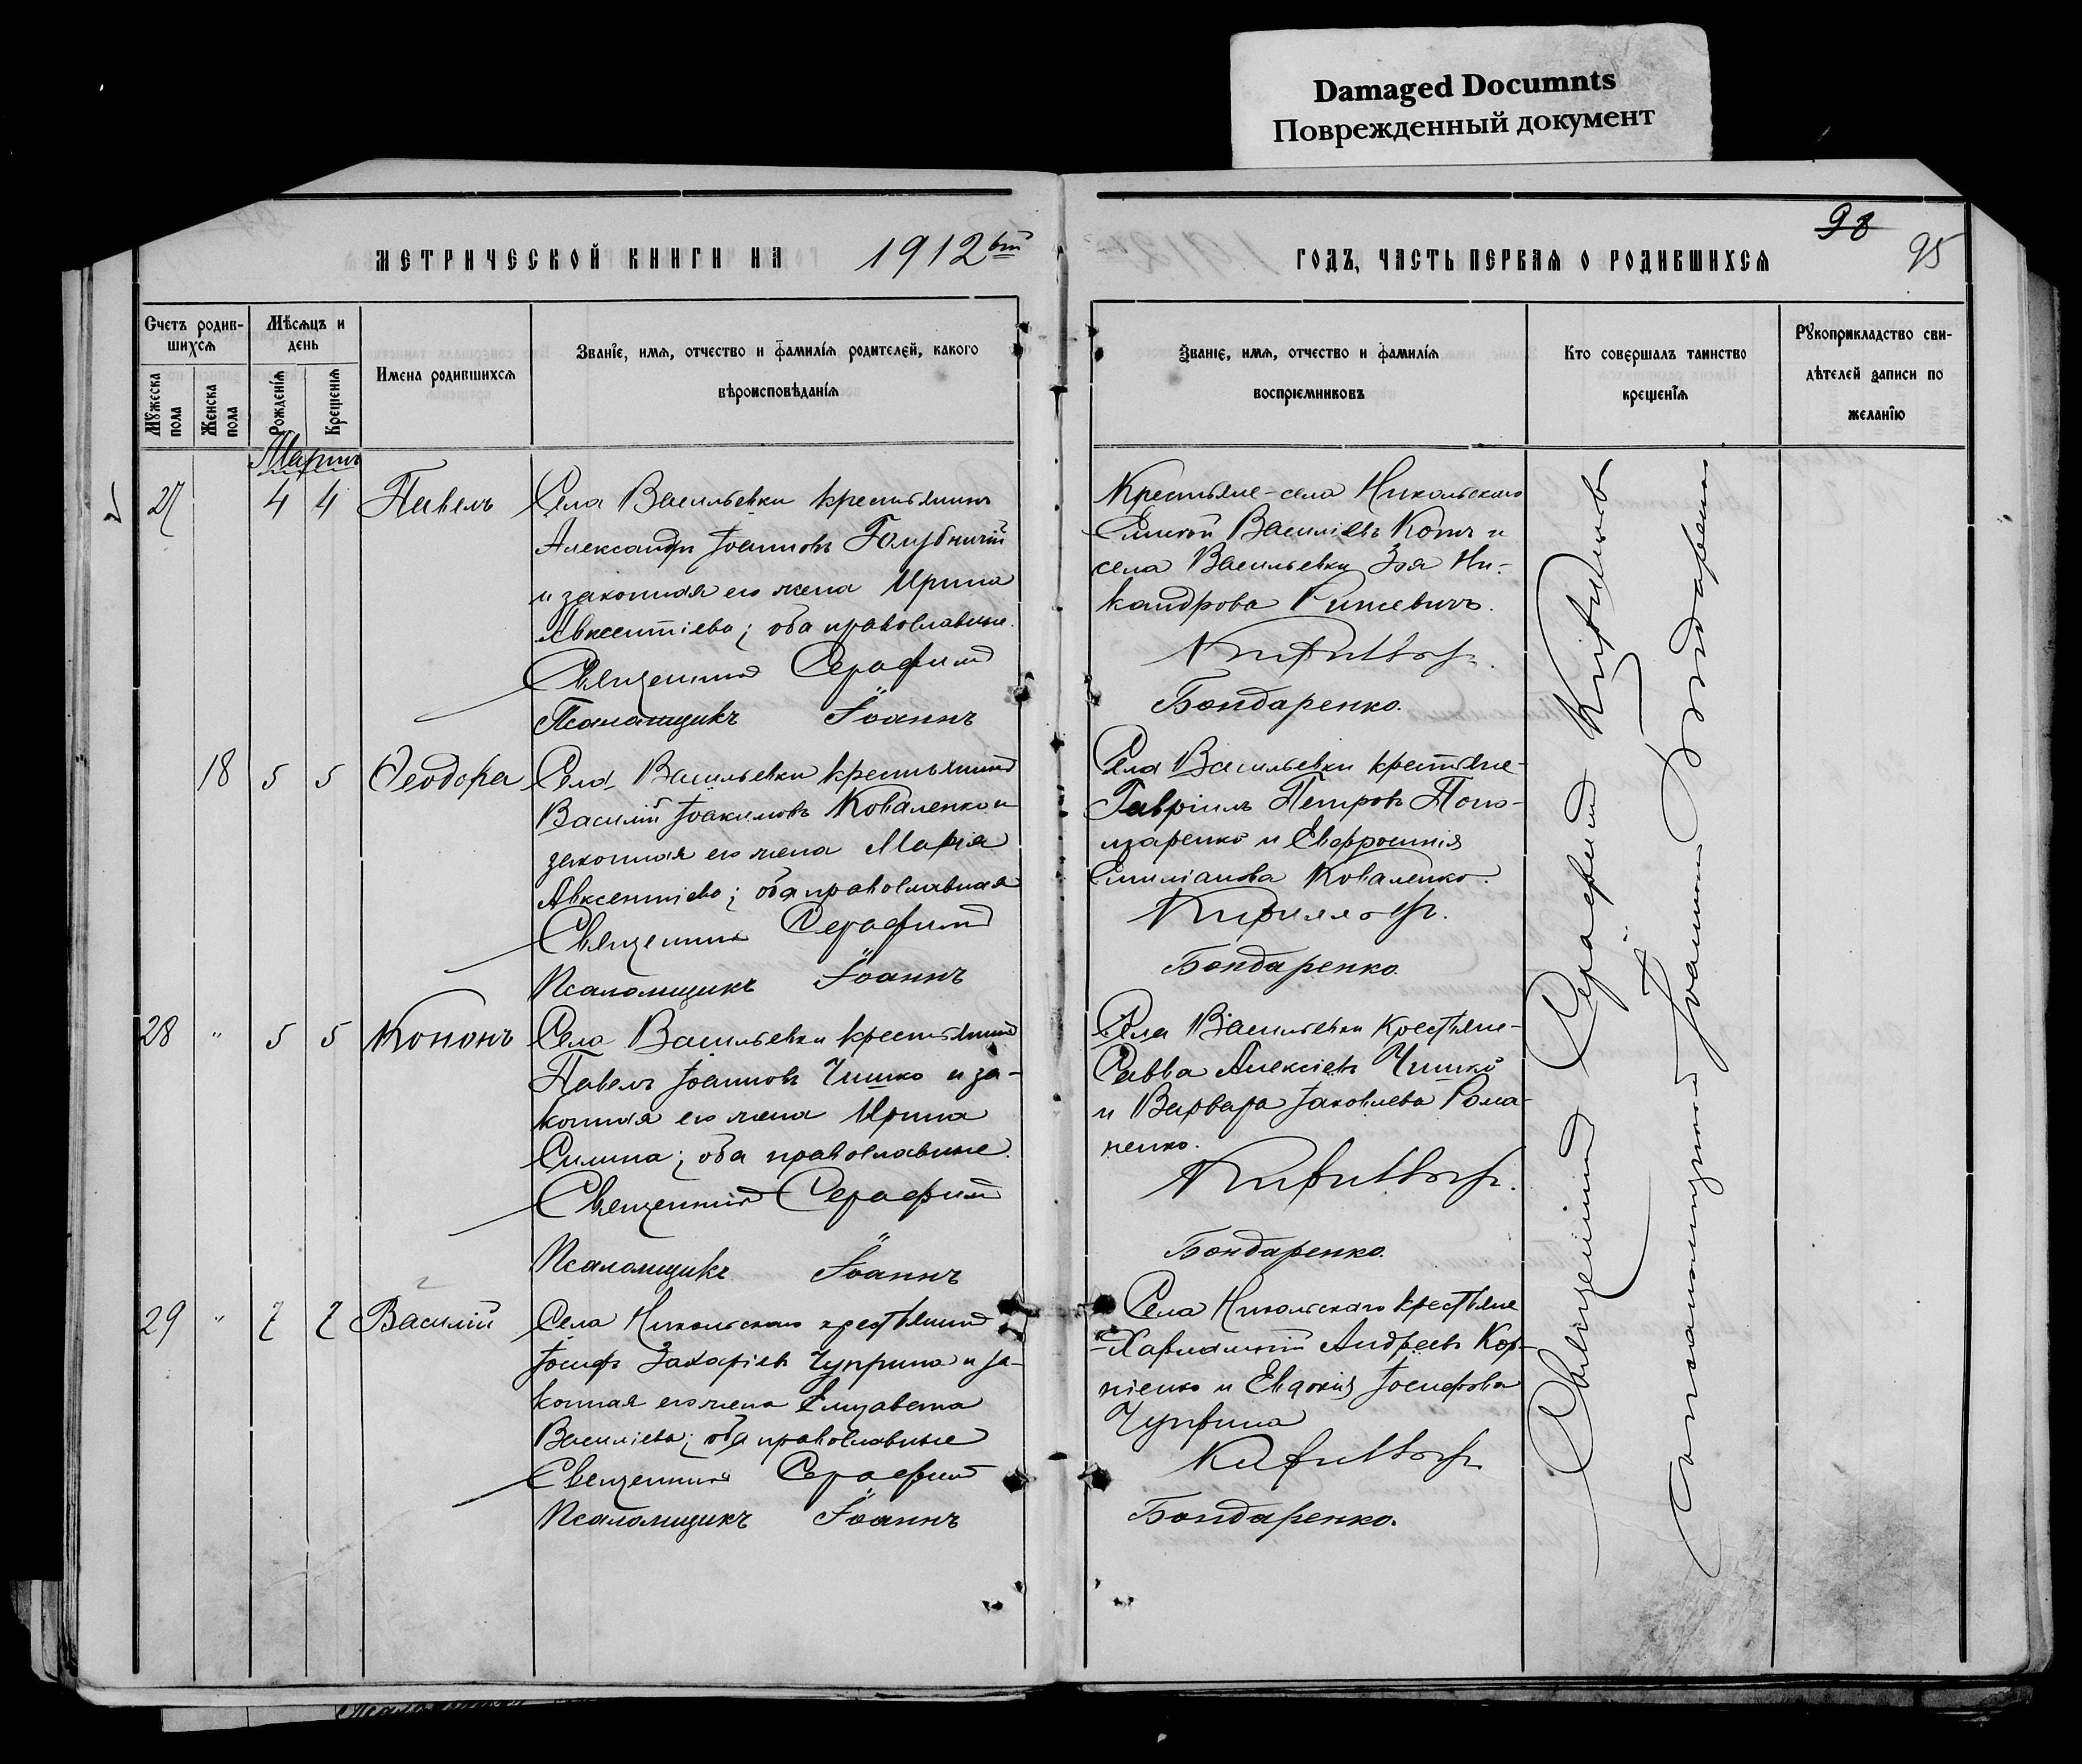 Damaged Documnts
Поврежденный документ
МЕТРИЧЕСКОЙ КНИГИ НА 1912
Счетъ родив-
шихся
Мужеска пола
Женска пола
Мѣсяцъ и
день
Рожденія
Крещенія
Имена родившихся
Званіе, имя, отчество и фамилія родителей, какого
вѣроисповѣданія
Мартъ
27 4 4 Павелъ
Села Васильевки крестьянинъ
Александръ Іоанновъ Голубничій
и законная его жена Ирина
Авксентіева; оба православные.
Священникъ Серафимъ
Псаломщикъ Іоаннъ
18 5 5 Ѳеодора
Села Васильевки крестьянинъ
Василій Іоакимовъ Коваленко и
законная его жена Марія
Авксентіева; оба православная
Священникъ Серафимъ
Псаломщикъ Іоаннъ
28 " 5 5 Кононъ
Села Васильевки крестьянинъ
Павелъ Іоанновъ Чишко и за-
конная его жена Ирина
Силина; оба православные.
Священникъ Серафимъ
Псаломщикъ Іоаннъ
29 " 7 7 Василій
Села Никольскаго крестьянинъ
Іосифъ Захаріевъ Чуприна и за-
конная его жена Елизавета
Василіева; оба православные
Священникъ Серафимъ
Псаломщикъ Іоаннъ
98
95
ГОДЪ, ЧАСТЬ ПЕРВАЯ О РОДИВШИХСЯ
Званіе, имя, отчество и фамилія
воспріемниковъ
Кто совершалъ таинство
крещенія
Рукоприкладство сви-
дѣтелей записи по
желанію
Крестьяне - села Никольскаго
Василіевъ Котъ и
села Васильевки Зоя Ни-
кандрова
Кирилловъ.
Бондаренко.
Села Васильевки крестьяне -
Гавріилъ Петровъ Поно-
маренко и Евфросинія
Емиліанова Коваленко.
Кирилловъ.
Бондаренко.
Села Васильевки крестьяне -
Савва Алексіевъ Чишко
и Варвара Іаковлева Рома-
ненко.
Кирилловъ.
Бондаренко.
Села Никольскаго крестьяне
- Харлампій Андреевъ Кор-
ніенко и Евдокія Іосифова
Чуприна
Кирилловъ
Бондаренко.
Священникъ Серафимъ Кирилловъ
Псаломщикъ Іоаннъ Бондаренко